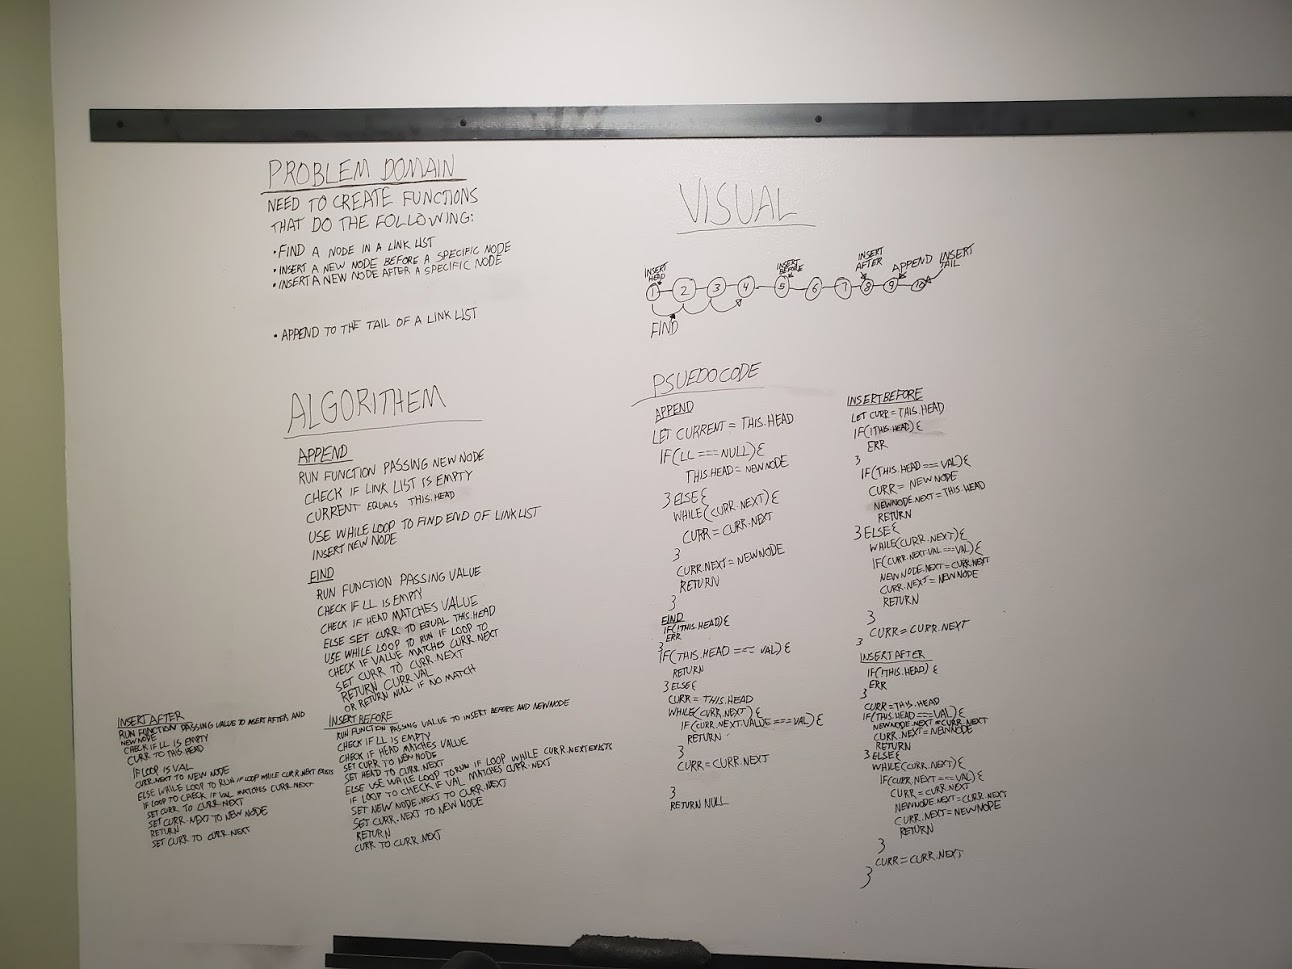 PROBLEM DOMAIN
NEED TO CREATE FUNCTIONS
THAT DO THE FOLLOWING:
• FIND A NODE IN A LINK LIST
• INSERT A NEW NODE BEFORE A SPECIFIC NODE
• INSERT A NEW NODE AFTER A SPECIFIC NODE
• APPEND TO THE TAIL OF A LINK LIST
VISUAL
INSERT HEAD
INSERT BEFORE
INSERT AFTER
APPEND
INSERT TAIL
1 2 3 4 5 6 7 8 9 10
FIND
ALGORITHEM
APPEND
RUN FUNCTION PASSING NEW NODE
CHECK IF LINK LIST IS EMPTY
CURRENT EQUALS THIS.HEAD
USE WHILE LOOP TO FIND END OF LINK LIST
INSERT NEW NODE
FIND
RUN FUNCTION PASSING VALUE
CHECK IF LL IS EMPTY
CHECK IF HEAD MATCHES VALUE
ELSE SET CURR TO EQUAL THIS.HEAD
USE WHILE LOOP TO RUN IF LOOP TO
CHECK IF VALUE MATCHES CURR.NEXT
SET CURR TO CURR.NEXT
RETURN CURR.VAL
OR RETURN NULL IF NO MATCH
INSERT AFTER
RUN FUNCTION PASSING VALUE TO INSERT AFTER AND
NEWNODE
CHECK IF LL IS EMPTY
CURR TO THIS HEAD
IF LOOP IS VAL
CURR.NEXT TO NEW NODE
ELSE WHILE LOOP TO RUN IF LOOP WHILE CURR.NEXT EXISTS
IF LOOP TO CHECK IF VAL MATCHES CURR.NEXT
SET CURR TO CURR.NEXT
SET CURR.NEXT TO NEW NODE
RETURN
SET CURR TO CURR.NEXT
INSERT BEFORE
RUN FUNCTION PASSING VALUE TO INSERT BEFORE AND NEWNODE
CHECK IF LL IS EMPTY
CHECK IF HEAD MATCHES VALUE
SET CURR TO NEW NODE
SET HEAD TO CURR.NEXT
ELSE USE WHILE LOOP TO RUN IF LOOP WHILE CURR.NEXT EXISTS
IF LOOP TO CHECK IF VAL MATCHES CURR.NEXT
SET NEW NODE.NEXT TO CURR.NEXT
SET CURR.NEXT TO NEW NODE
RETURN
CURR TO CURR.NEXT
PSUEDOCODE
APPEND
LET CURRENT = THIS.HEAD
IF(LL === NULL){
THIS.HEAD = NEWNODE
} ELSE{
WHILE(CURR.NEXT){
CURR = CURR.NEXT
}
CURR.NEXT = NEWNODE
RETURN
}
FIND
IF(!THIS.HEAD){
ERR
}
IF(THIS.HEAD === VAL){
RETURN
} ELSE{
CURR = THIS.HEAD
WHILE(CURR.NEXT){
IF(CURR.NEXT.VALUE === VAL){
RETURN
}
CURR = CURR.NEXT
}
RETURN NULL
INSERT BEFORE
LET CURR = THIS.HEAD
IF(!THIS.HEAD){
ERR
}
IF(THIS.HEAD === VAL){
CURR = NEWNODE
NEWNODE.NEXT = THIS.HEAD
RETURN
} ELSE{
WHILE(CURR.NEXT){
IF(CURR.NEXT.VAL === VAL){
NEWNODE.NEXT = CURR.NEXT
CURR.NEXT = NEWNODE
RETURN
}
CURR = CURR.NEXT
}
INSERT AFTER
IF(!THIS.HEAD){
ERR
}
CURR = THIS.HEAD
IF(THIS.HEAD === VAL){
NEWNODE.NEXT = CURR.NEXT
CURR.NEXT = NEWNODE
RETURN
} ELSE{
WHILE(CURR.NEXT){
IF(CURR.NEXT === VAL){
CURR = CURR.NEXT
NEWNODE.NEXT = CURR.NEXT
CURR.NEXT = NEWNODE
RETURN
}
CURR = CURR.NEXT
}